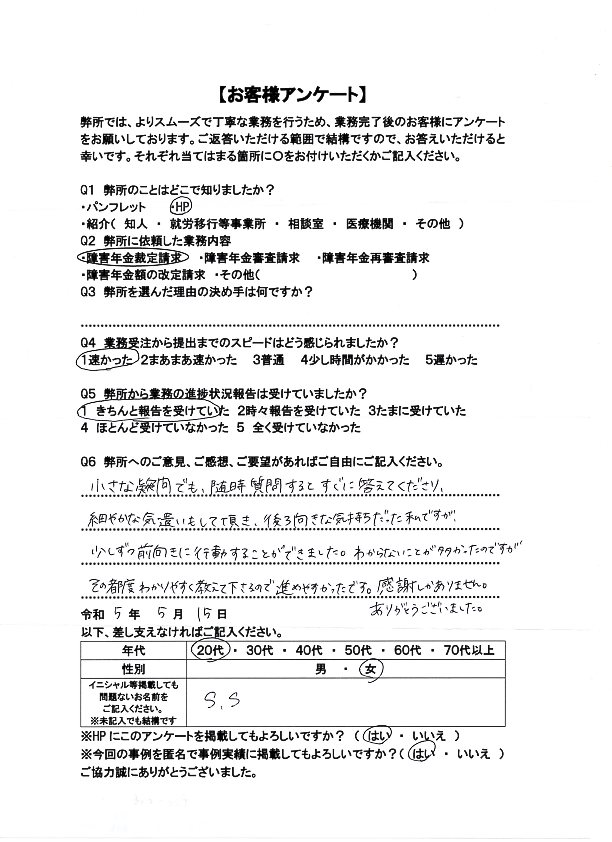 【お客様アンケート】
弊所では、よりスムーズで丁寧な業務を行うため、業務完了後のお客様にアンケート
をお願いしております。ご返答いただける範囲で結構ですので、お答えいただけると
幸いです。それぞれ当てはまる箇所に○をお付けいただくかご記入ください。
Q1 弊所のことはどこで知りましたか？
・パンフレット ・HP
・紹介（ 知人 ・ 就労移行等事業所 ・ 相談室 ・ 医療機関 ・ その他 ）
Q2 弊所に依頼した業務内容
・障害年金裁定請求 ・障害年金審査請求 ・障害年金再審査請求
・障害年金額の改定請求 ・その他（ ）
Q3 弊所を選んだ理由の決め手は何ですか？
Q4 業務受注から提出までのスピードはどう感じられましたか？
1速かった 2まあまあ速かった 3普通 4少し時間がかかった 5遅かった
Q5 弊所から業務の進捗状況報告は受けていましたか？
1 きちんと報告を受けていた 2時々報告を受けていた 3たまに受けていた
4 ほとんど受けていなかった 5 全く受けていなかった
Q6 弊所へのご意見、ご感想、ご要望があればご自由にご記入ください。
小さな疑問でも、随時質問するとすぐに答えてくださり、
細やかな気遣いもして頂き、後ろ向きな気持ちだった私ですが、
少しずつ前向きに行動することができました。わからないことが多かったのですが
その都度わかりやすく教えて下さるので進めやすかったです。感謝しかありません。
ありがとうございました。
令和 5 年 5 月 15 日
以下、差し支えなければご記入ください。
年代 20代 ・ 30代 ・ 40代 ・ 50代 ・ 60代 ・ 70代以上
性別 男 ・ 女
イニシャル等掲載しても
問題ないお名前を
ご記入ください。
※未記入でも結構です
S.S
※HPにこのアンケートを掲載してもよろしいですか？（ はい ・ いいえ ）
※今回の事例を匿名で事例実績に掲載してもよろしいですか？（ はい ・ いいえ ）
ご協力誠にありがとうございました。